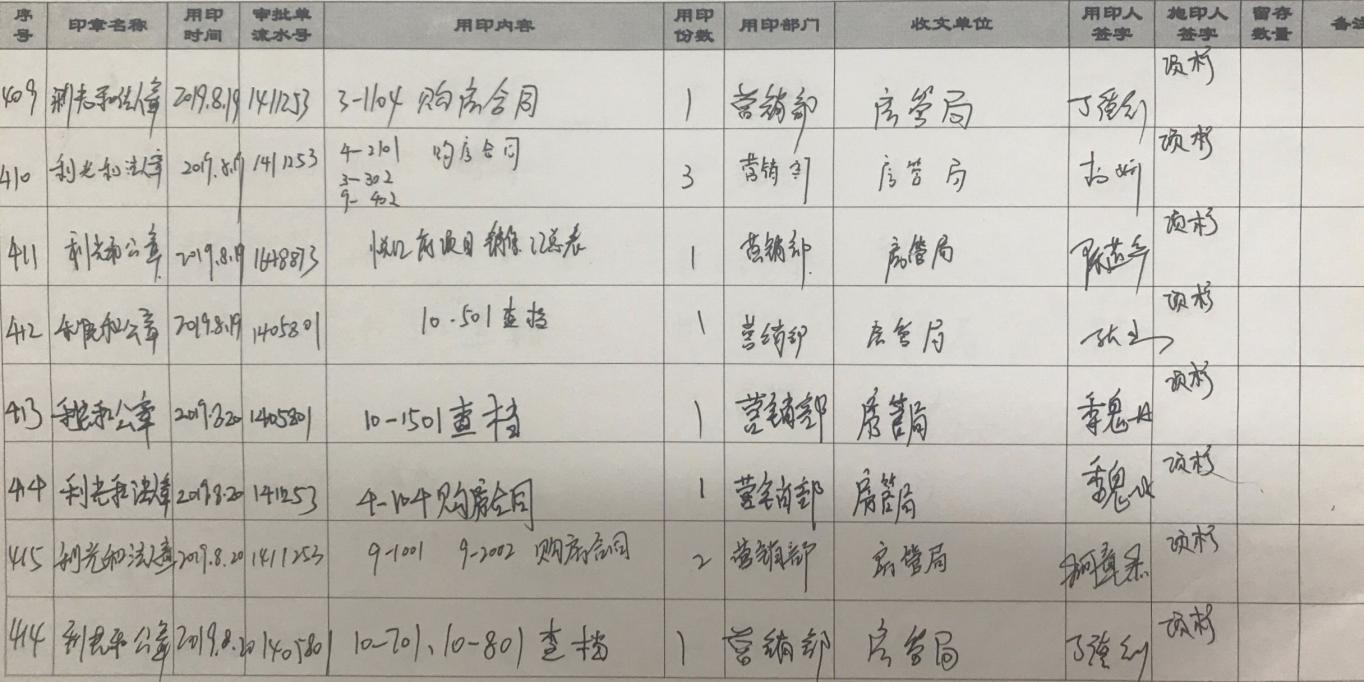 序号 印章名称 用印时间 审批单流水号 用印内容 用印份数 用印部门 收文单位 用印人签字 施印人签字 留存数量 备注
409 利光和法人章 2019.8.19 1411253 3-1104 购房合同 1 营销部 房管局 丁强 项杉
410 利光和法人章 2019.8.19 1411253 4-2101 购房合同 3 营销部 房管局 项杉
3-302
9-402
411 利光和公章 2019.8.19 1648873 项目销售汇总表 1 营销部 房管局 项杉
412 利光和公章 2019.8.19 1405801 10-501查档 1 营销部 房管局 项杉
413 利光和公章 2019.8.20 1405801 10-1501查档 1 营销部 房管局 项杉
414 利光和法人章 2019.8.20 141253 4-104购房合同 1 营销部 房管局 项杉
415 利光和法人章 2019.8.20 1411253 9-1001 9-2002 购房合同 2 营销部 房管局 项杉
414 利光和公章 2019.8.20 1405801 10-701、10-801查档 1 营销部 房管局 丁强 项杉